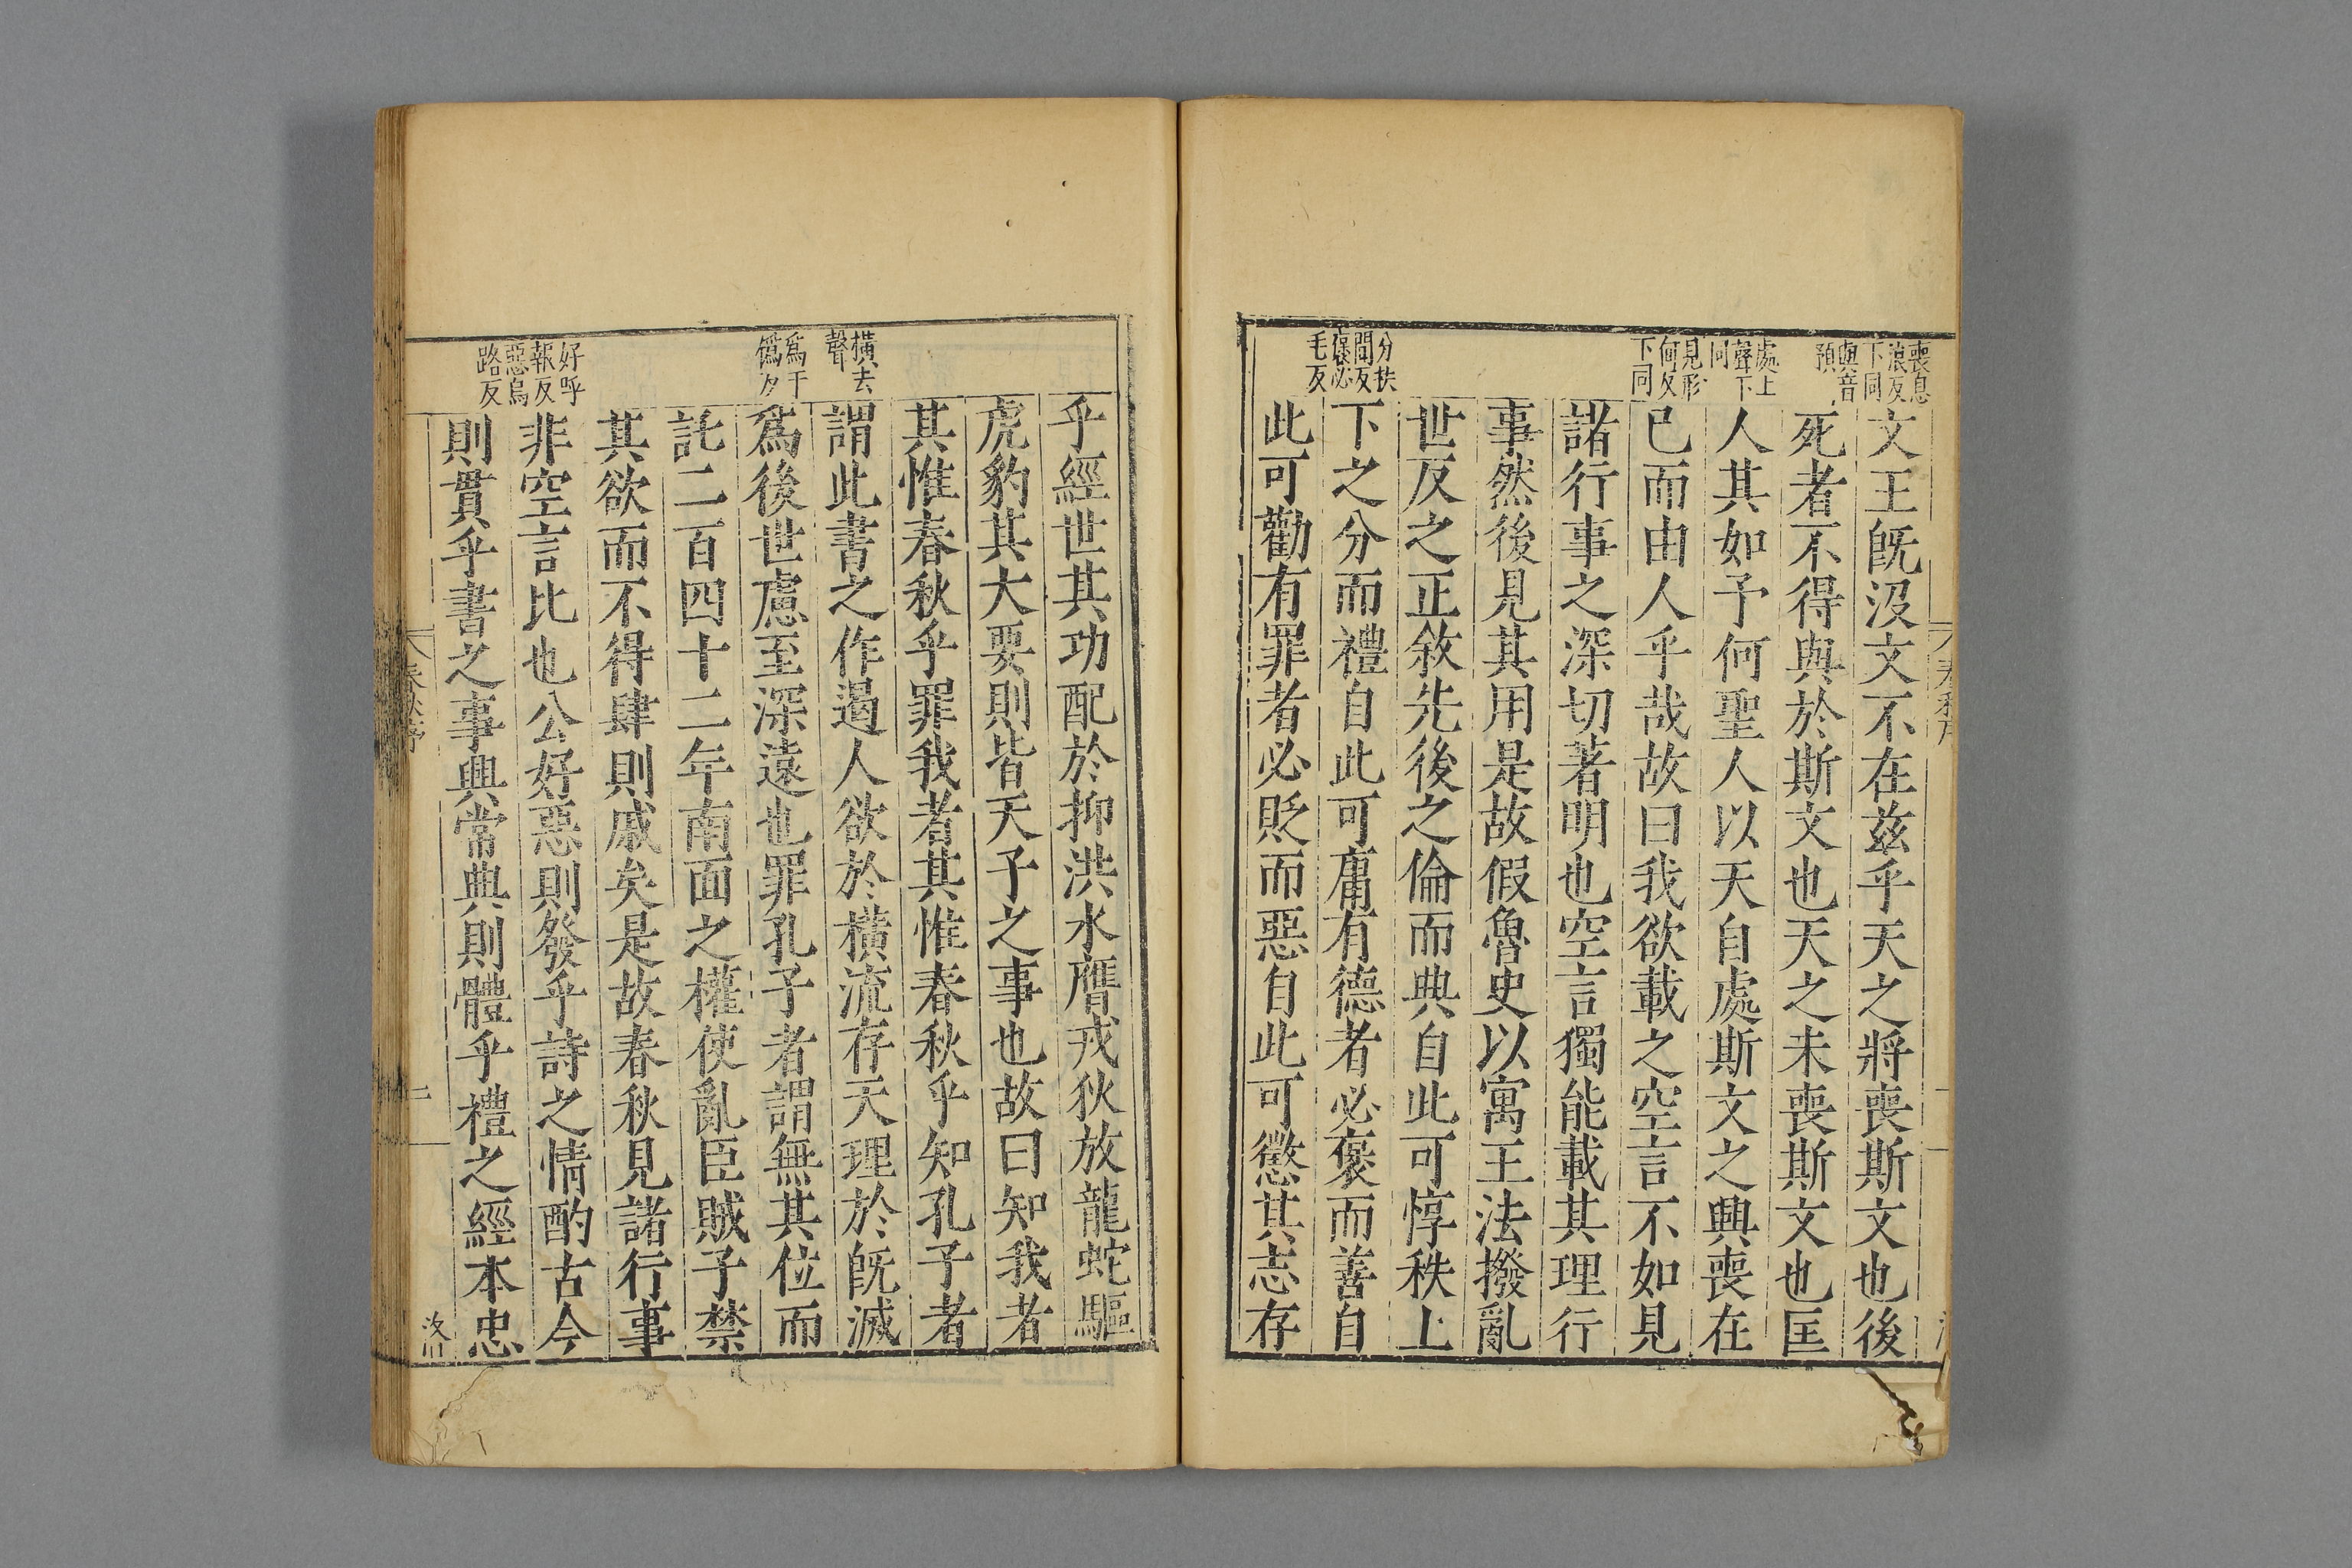 喪息浪反下同
與音預
處上聲下同
見形何反下同
分扶問反褒必毛反
文王旣沒文不在茲乎天之將喪斯文也後
死者不得與於斯文也天之未喪斯文也匡
人其如予何聖人以天自處斯文之興喪在
已而由人乎哉故曰我欲載之空言不如見
諸行事之深切著明也空言獨能載其理行
事然後見其用是故假魯史以寓王法撥亂
世反之正敘先後之倫而典自此可惇秩上
下之分而禮自此可庸有德者必褒而善自
此可勸有罪者必貶而惡自此可懲其志存
橫去聲
爲于僞反
好呼報反惡烏路反
乎經世其功配於抑洪水膺戎狄放龍蛇驅
虎豹其大要則皆天子之事也故曰知我者
其惟春秋乎罪我者其惟春秋乎知孔子者
謂此書之作遏人欲於橫流存天理於旣滅
爲後世慮至深遠也罪孔子者謂無其位而
託二百四十二年南面之權使亂臣賊子禁
其欲而不得肆則戚矣是故春秋見諸行事
非空言比也公好惡則發乎詩之情酌古今
則貫乎書之事興常典則體乎禮之經本忠
春秋序
二
洛川